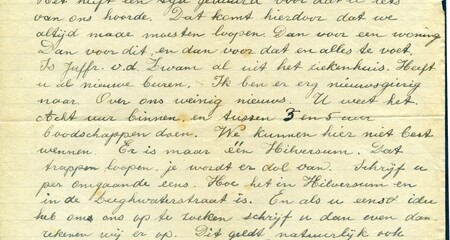 heeft een tijd geduurd voor dat u iets
van ons hoorde. Dat komt hierdoor dat we
altijd maar moesten loopen. Dan voor een woning
Dan voor dit, en dan voor dat en alles te voet.
Is Juffr. v.d. Zwam al uit het ziekenhuis. Heeft
u al nieuwe buren. Ik ben er erg nieuwsgierig
naar. Over ons weinig nieuws. U weet het.
Acht uur binnen, en tussen 3 en 5 uur
boodschappen doen. We kunnen hier niet best
wennen. Er is maar één Hilversum. Dat
trappen loopen. je wordt er dol van. Schrijf u
per omgaande eens. Hoe het in Hilversum en
in de Leeghwaterstraat is. En als u eens 't idee
hub ons ons op te zoeken schrijf u dan even dan
rekenen wij er op. Dit geldt natuurlijk ook